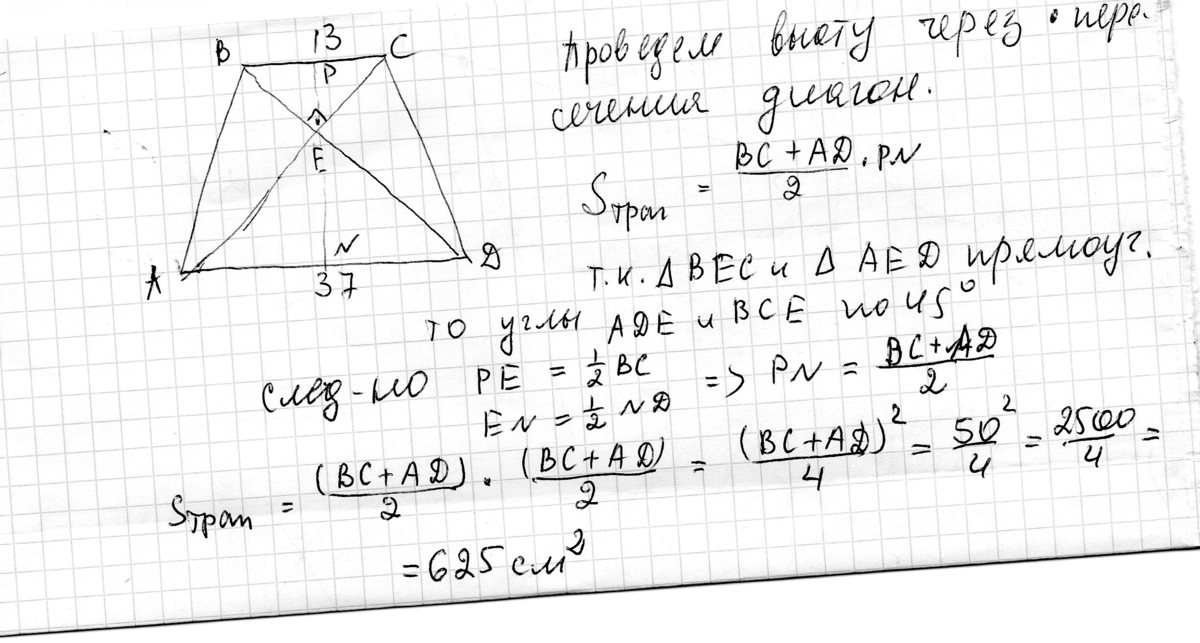 13
B
P
C
E
N
A
D
37
Проведем высоту через • пере-
сечения диагон.
Sтрап = (BC + AD)/2 · PN
т.к. Δ BEC и Δ AED прямоуг.
то углы ADE и BCE по 45°
след-но PE = 1/2 BC
EN = 1/2 ND => PN = (BC+AD)/2
Sтрап = (BC+AD)/2 · (BC+AD)/2 = (BC+AD)²/4 = 50²/4 = 2500/4 =
= 625 см²